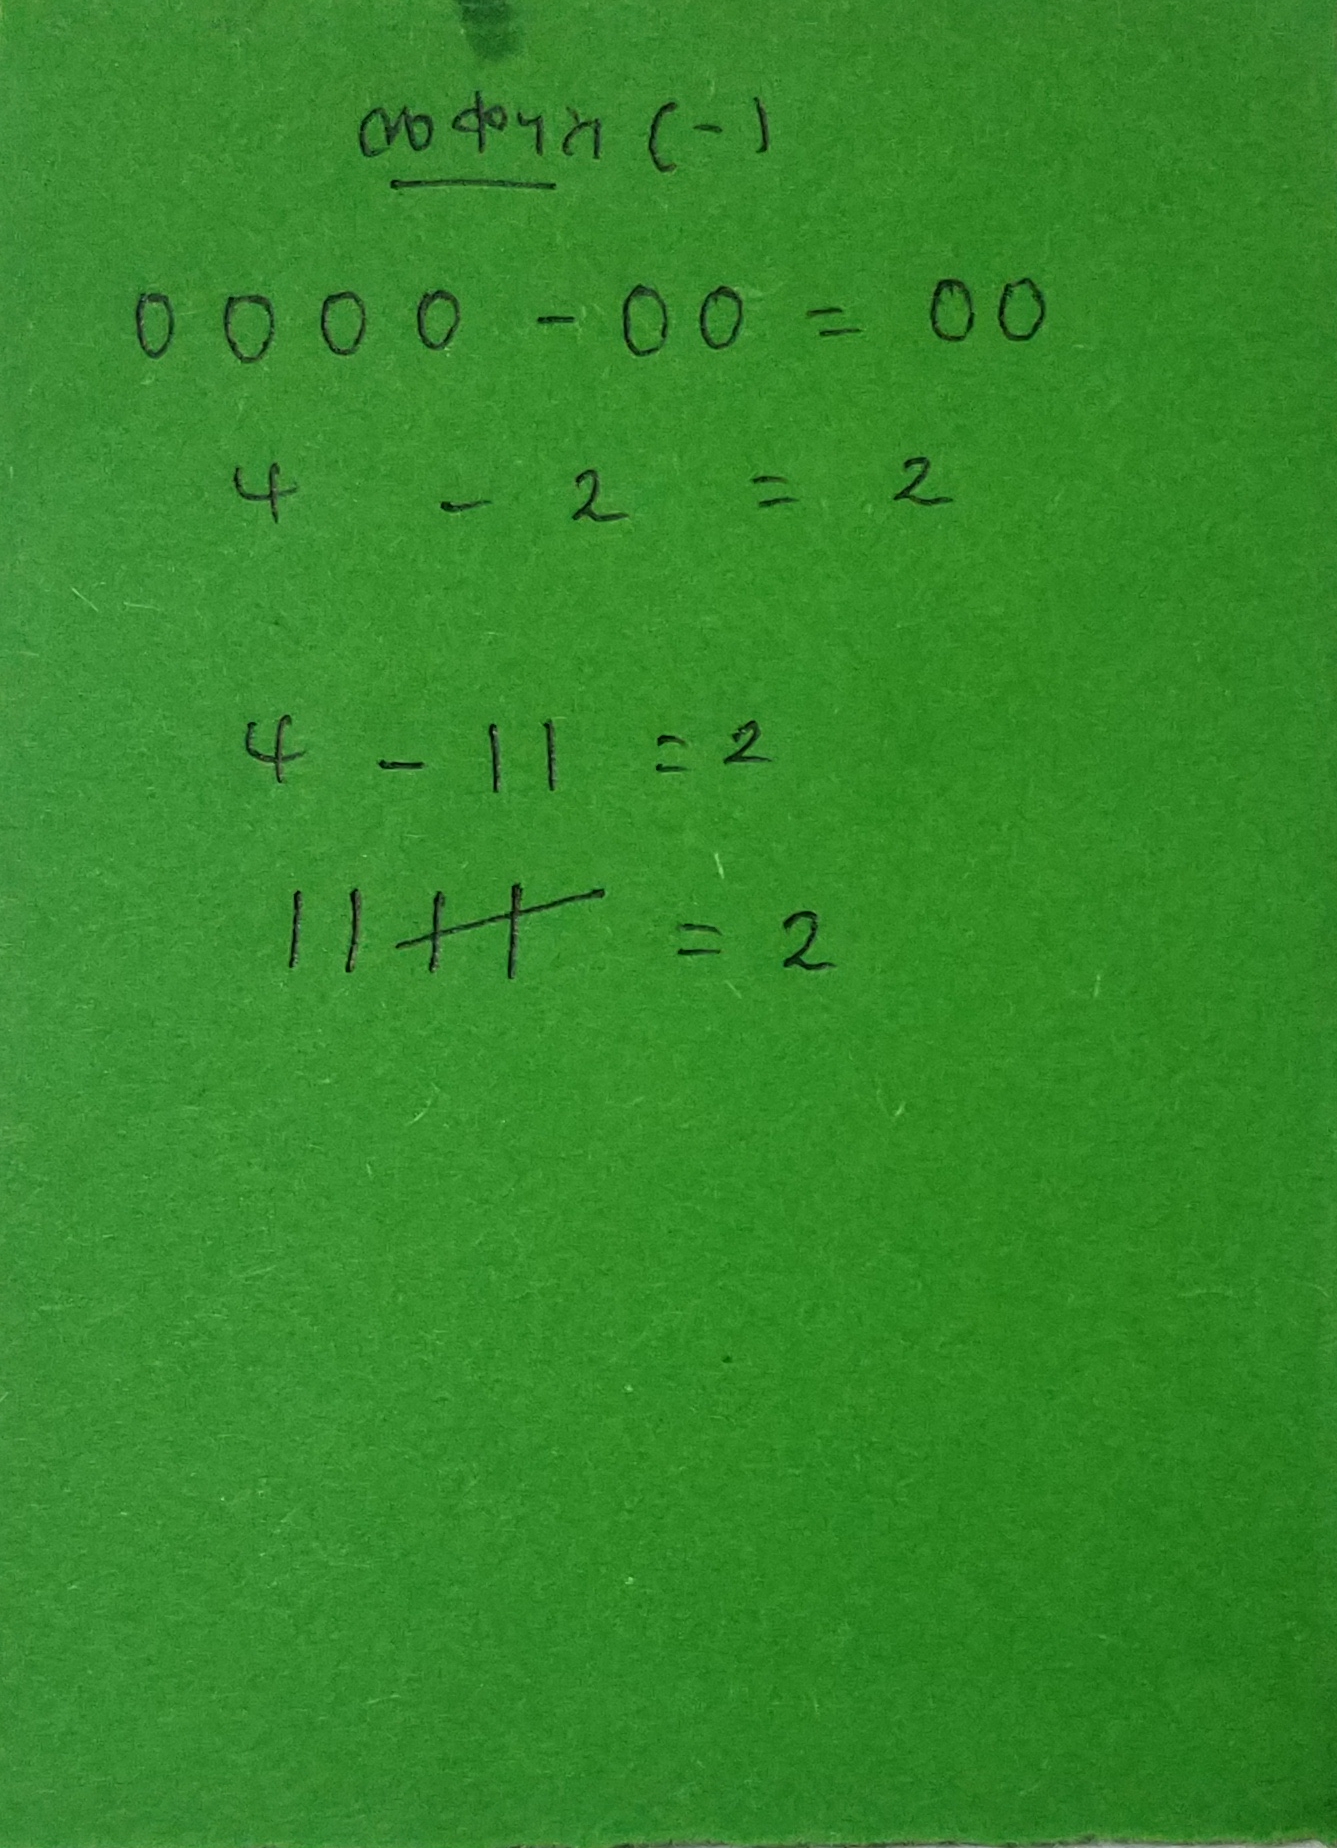 (-)
0 0 0 0 - 00 = 00
4 - 2 = 2
4 - 11 = 2
1111 = 2